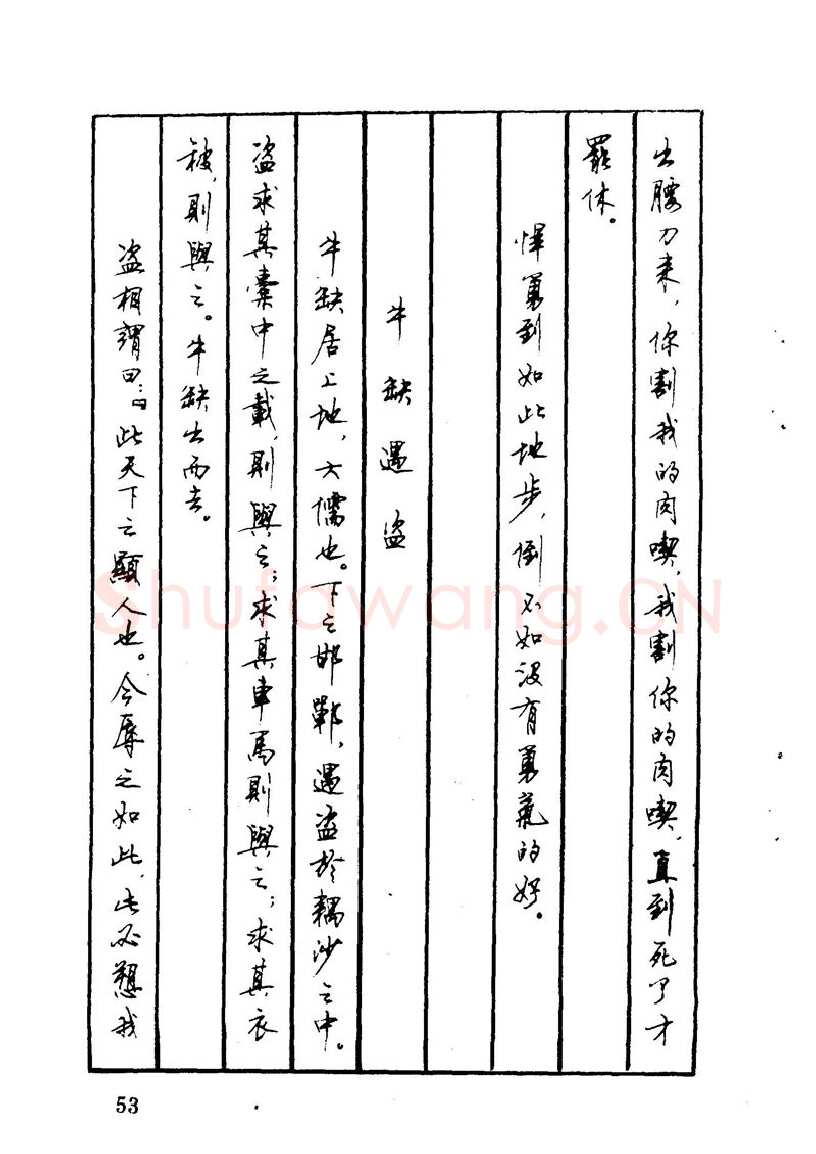 出腰刀来，你割我的肉喫，我割你的肉喫，直到死了才
罷休。
悍勇到如此地步，倒不如没有勇氣的好。
牛缺遇盗
牛缺居上地，大儒也。下之邯鄲，遇盗於耦沙之中。
盗求其橐中之載，則與之；求其車馬則與之；求其衣
被，則與之。牛缺出而去。
盗相謂曰：“此天下之顯人也。今辱之如此，此必愬我
53
Shufawang.CN